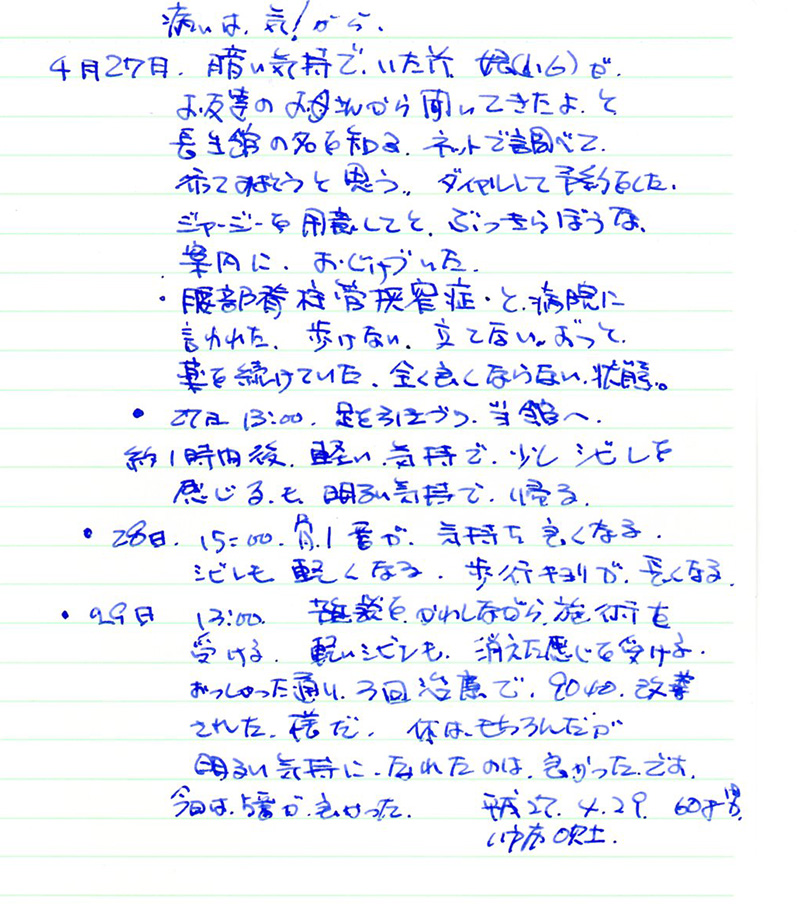 病いは、気!から、
4月27日、暗い気持で、いた所、娘(小6)が、
お友達のお母さんから聞いてきたよ、と
長生館の名を知る、ネットで調べて、
行ってみようと思う。ダイヤルして予約をした、
ジャージーを用意してと、ぶっきらぼうな、
案内に、おじけづいた、
・腰部脊柱管狭窄症・と、病院に
言われた、歩けない、立てない。ずっと、
薬を続けていた、全く良くならない、状態。
・27日 13:00、足を引きづり、当館へ、
約1時間後、軽い、気持で、少しシビレを
感じる、も、明るい気持で、帰る、
・28日、15:00、骨、1番が、気持ち良くなる、
シビレも軽くなる、歩行キョリが、長くなる、
・29日 13:00、雑談を、かわしながら、施術を
受ける、軽いシビレも、消えた感じを受ける、
おっしゃった通り、3回治療で、90%、改善
された、様だ、体は、もちろんだが
明るい気持に、なれたのは、良かった、です、
今日は、5番が、良かった、 平成27、4、29、60才男、